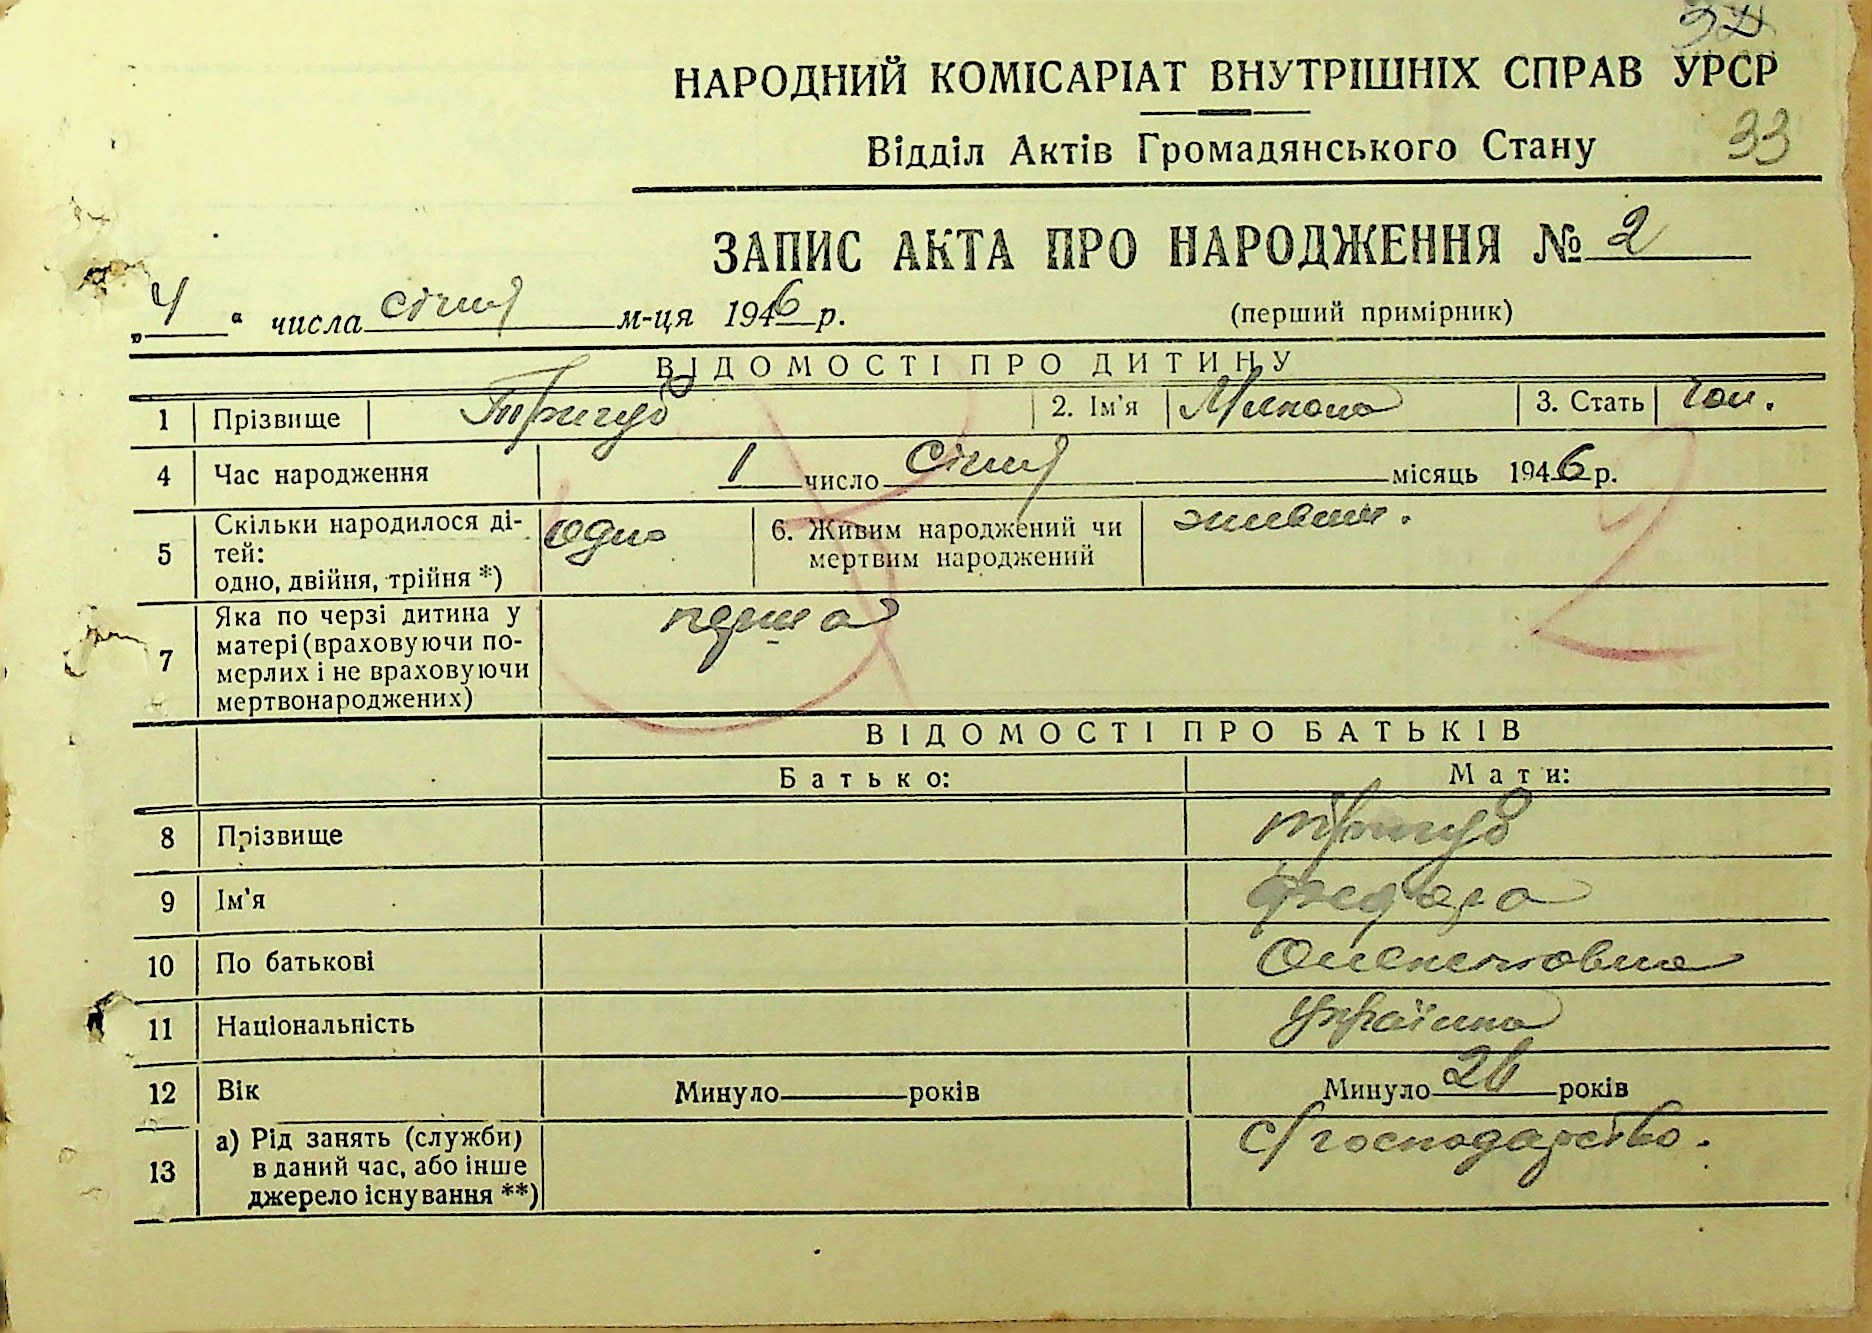 НАРОДНИЙ КОМІСАРІАТ ВНУТРІШНІХ СПРАВ УРСР
Відділ Актів Громадянського Стану 33
ЗАПИС АКТА ПРО НАРОДЖЕННЯ № 2
„4“ числа січня м-ця 1946 р. (перший примірник)
ВІДОМОСТІ ПРО ДИТИНУ
1 Прізвище Тригуб 2. Ім'я Микола 3. Стать чол.
4 Час народження 1 число січня місяць 1946 р.
5 Скільки народилося ді-
тей:
одно, двійня, трійня *) одно 6. Живим народжений чи
мертвим народжений живим.
7 Яка по черзі дитина у
матері (враховуючи по-
мерлих і не враховуючи
мертвонароджених) перша
ВІДОМОСТІ ПРО БАТЬКІВ
Батько: Мати:
8 Прізвище Тригуб
9 Ім'я
10 По батькові
11 Національність Українка
12 Вік Минуло років Минуло 26 років
13 а) Рід занять (служби)
в даний час, або інше
джерело існування **) с/господарство.